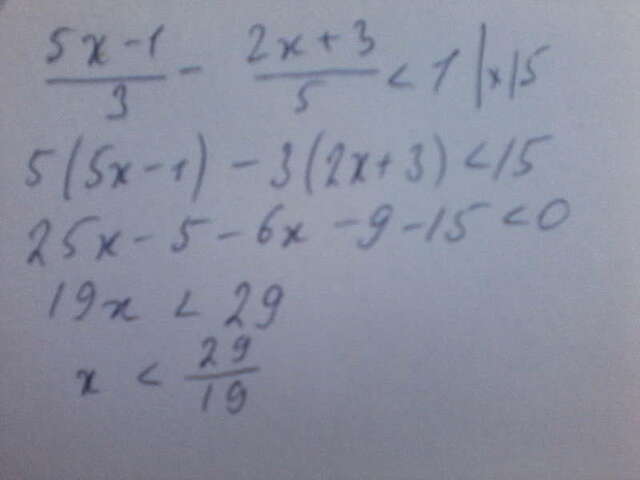 (5x-1)/3 - (2x+3)/5 < 1 | x15
5(5x-1) - 3(2x+3) < 15
25x - 5 - 6x - 9 - 15 < 0
19x < 29
x < 29/19